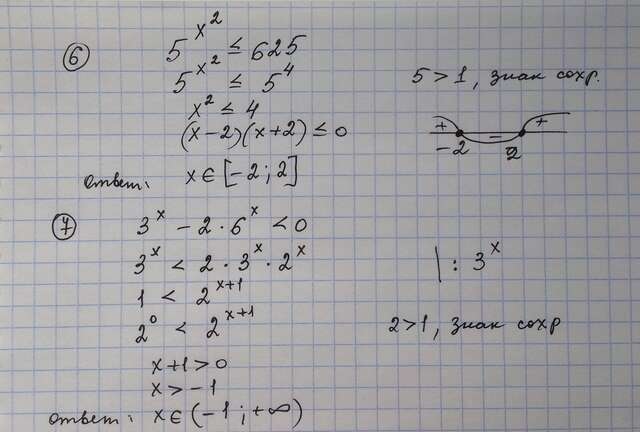 ⑥ 5^(x^2) ≤ 625
5^(x^2) ≤ 5^4 5 > 1, знак сохр.
x^2 ≤ 4
(x-2)(x+2) ≤ 0 + - + -2 2
Ответ: x ∈ [-2; 2]
⑦ 3^x - 2 · 6^x < 0
3^x < 2 · 3^x · 2^x | : 3^x
1 < 2^(x+1)
2^0 < 2^(x+1) 2>1, знак сохр
x+1 > 0
x > -1
Ответ: x ∈ (-1; +∞)